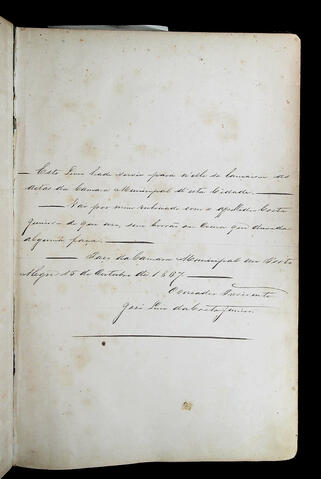 Este Livro hade servir para n'elle se lançarem as
actas da Camara Municipal d'esta Cidade.
Vai por mim rubricado com o appellido Costa
Junior de que uso, sem borrão ou cousa que duvida
alguma faça.
Paço da Camara Municipal em Porto
Alegre 15 de Outubro de 1867
O Vereador
José Luiz da Costa Junior.